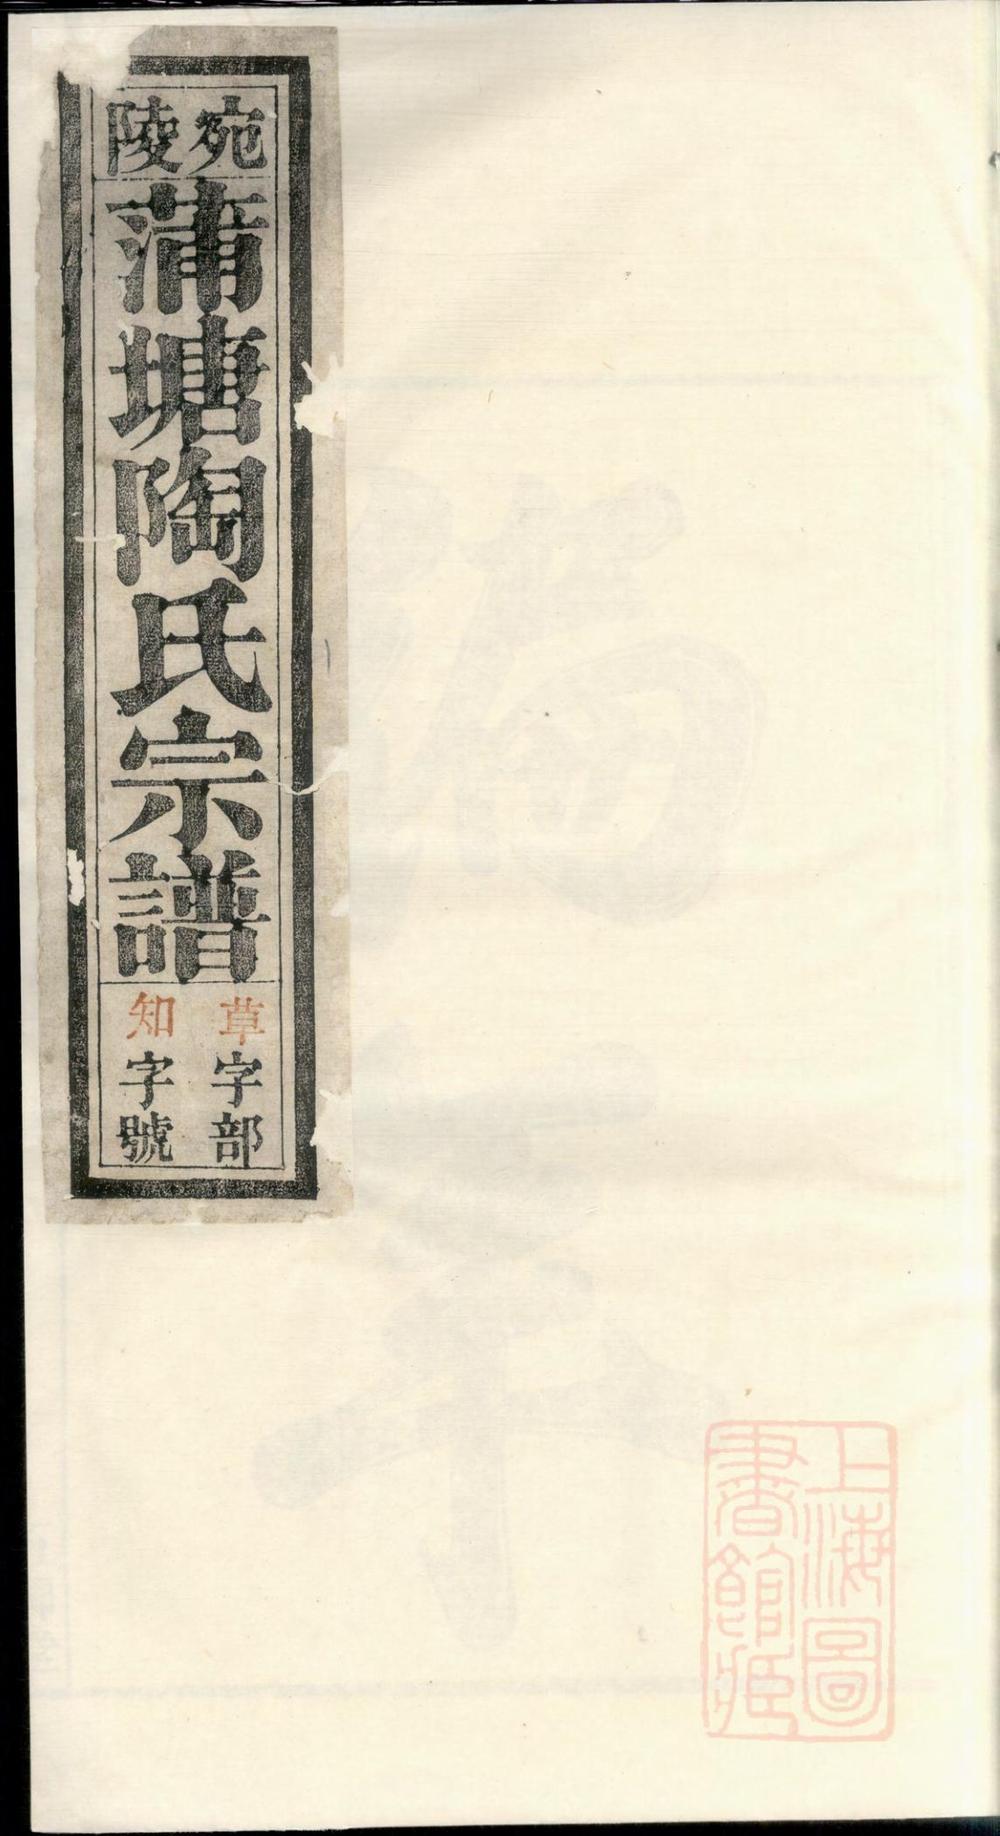 宛陵
蒲塘陶氏宗譜
草字部
知字號
上海圖
書館藏